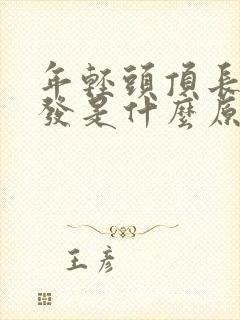 年轻頭頂長
發是什麼原
王彦